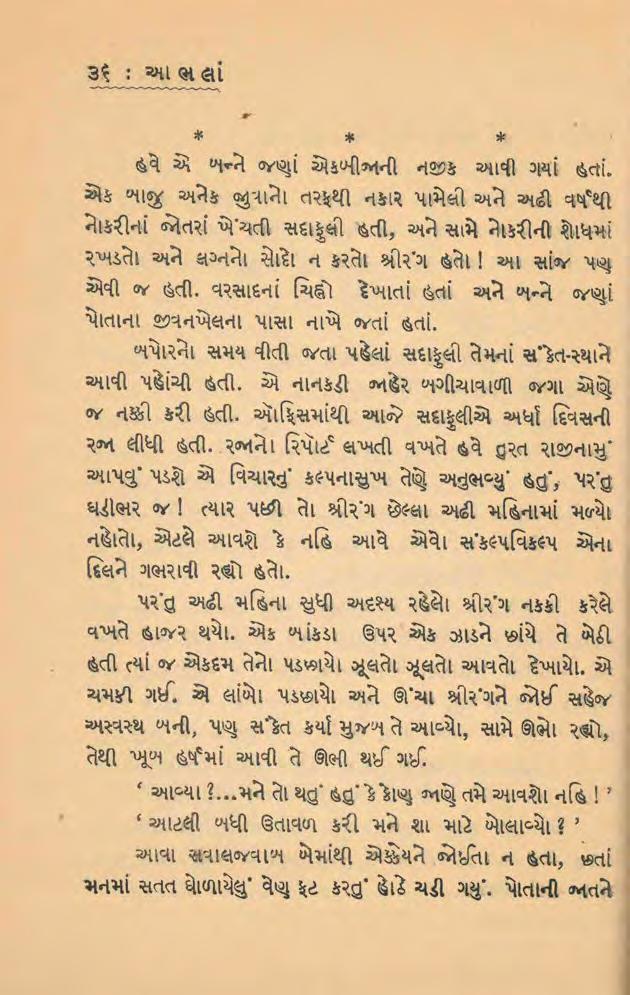 ૩૬ : આ ભ લાં
* * *
હવે એ બન્ને જણાં એકબીજાની નજીક આવી ગયાં હતાં.
એક બાજુ અનેક જુવાનો તરફથી નકાર પામેલી અને અઢી વર્ષથી
નોકરીનાં જોતરાં ખેંચતી સદાફુલી હતી, અને સામે નોકરીની શોધમાં
રખડતો અને લગ્નનો સોદો ન કરતો શ્રીરંગ હતો! આ સાંજ પણ
એવી જ હતી. વરસાદનાં ચિહ્નો દેખાતાં હતાં અને બન્ને જણાં
પોતાના જીવનખેલના પાસા નાખે જતાં હતાં.
બપોરનો સમય વીતી જતા પહેલાં સદાફુલી તેમનાં સંકેત-સ્થાને
આવી પહોંચી હતી. એ નાનકડી જાહેર બગીચાવાળી જગા એણે
જ નક્કી કરી હતી. ઑફિસમાંથી આજે સદાફુલીએ અર્ધા દિવસની
રજા લીધી હતી. રજાનો રિપોર્ટ લખતી વખતે હવે તુરત રાજીનામું
આપવું પડશે એ વિચારનું કલ્પનાસુખ તેણે અનુભવ્યું હતું, પરંતુ
ઘડીભર જ! ત્યાર પછી તો શ્રીરંગ છેલ્લા અઢી મહિનામાં મળ્યો
નહોતો, એટલે આવશે કે નહિ આવે એવો સંકલ્પવિકલ્પ એના
દિલને ગભરાવી રહ્યો હતો.
પરંતુ અઢી મહિના સુધી અદૃશ્ય રહેલો શ્રીરંગ નક્કી કરેલે
વખતે હાજર થયો. એક બાંકડા ઉપર એક ઝાડને છાંયે તે બેઠી
હતી ત્યાં જ એકદમ તેનો પડછાયો ઝૂલતો ઝૂલતો આવતો દેખાયો. એ
ચમકી ગઈ. એ લાંબો પડછાયો અને ઊંચા શ્રીરંગને જોઈ સહેજ
અસ્વસ્થ બની, પણ સંકેત કર્યા મુજબ તે આવ્યો, સામે ઊભો રહ્યો,
તેથી ખૂબ હર્ષમાં આવી તે ઊભી થઈ ગઈ.
‘ આવ્યા ?...મને તો થતું હતું કે કોણ જાણે તમે આવશો નહિ ! ’
‘ આટલી બધી ઉતાવળ કરી મને શા માટે બોલાવ્યો ? ’
આવા સવાલજવાબ બેમાંથી એક્કેયને જોઈતા ન હતા, છતાં
મનમાં સતત ઘોળાયેલું વેણ ફટ કરતું હોઠે ચડી ગયું. પોતાની જાતને